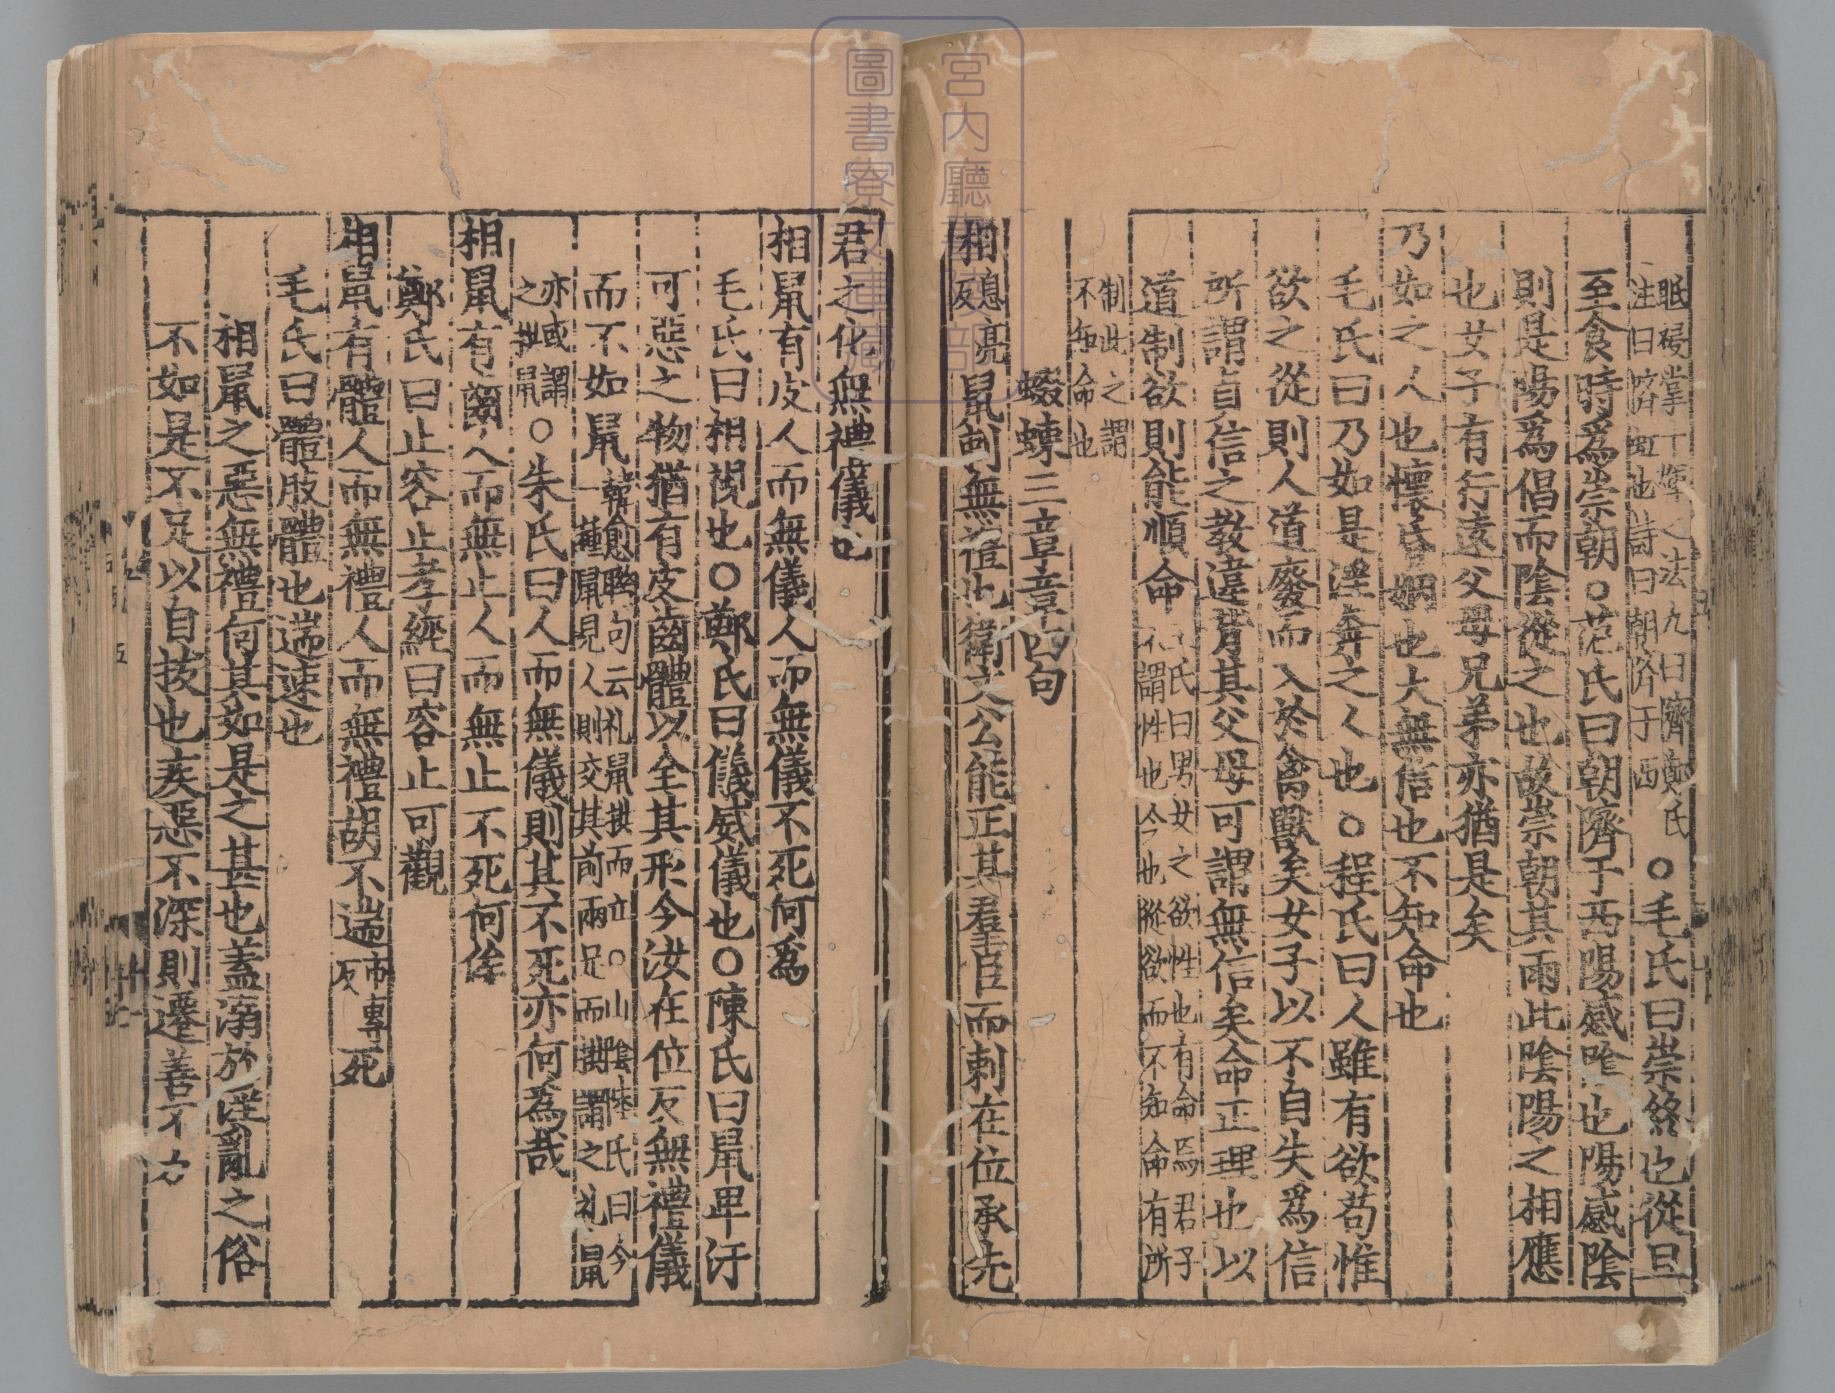 眡祲掌十煇之法九曰隮鄭氏
注曰隮虹也詩曰朝隮于西
○毛氏曰崇終也從旦
至食時爲崇朝○范氏曰朝隮于西陽感陰也陽感陰
則是陽爲倡而陰從之也故崇朝其雨此陰陽之相應
也女子有行遠父母兄弟亦猶是矣
乃如之人也懷昏姻也大無信也不知命也
毛氏曰乃如是淫奔之人也○程氏曰人雖有欲苟惟
欲之從則人道廢而入於禽獸矣女子以不自失爲信
所謂貞信之教違背其父母可謂無信矣命正理也以
道制欲則能順命
氏曰男女之欲性也有命焉君子
不謂性也今也從欲而不知命有所
制此之謂
不知命也
蝃蝀三章章四句
相
息亮
反
鼠刺無禮也衛文公能正其羣臣而刺在位承先
君之化無禮儀也
相鼠有皮人而無儀人而無儀不死何爲
毛氏曰相視也○鄭氏曰儀威儀也○陳氏曰鼠卑汙
可惡之物猶有皮齒體以全其形今汝在位反無禮儀
而不如鼠
韓愈聯句云礼鼠拱而立○山陰陸氏曰今
一種鼠見人則交其前兩足而拱謂之礼鼠
亦或謂
之拱鼠
○朱氏曰人而無儀則其不死亦何爲哉
相鼠有齒人而無止人而無止不死何俟
鄭氏曰止容止孝經曰容止可觀
相鼠有體人而無禮人而無禮胡不遄
市專
反
死
毛氏曰體肢體也遄速也
相鼠之惡無禮何其如是之甚也蓋溺於淫亂之俗
不如是不足以自拔也疾惡不深則遷善不力
宮内廳書陵部
圖書寮文庫藏